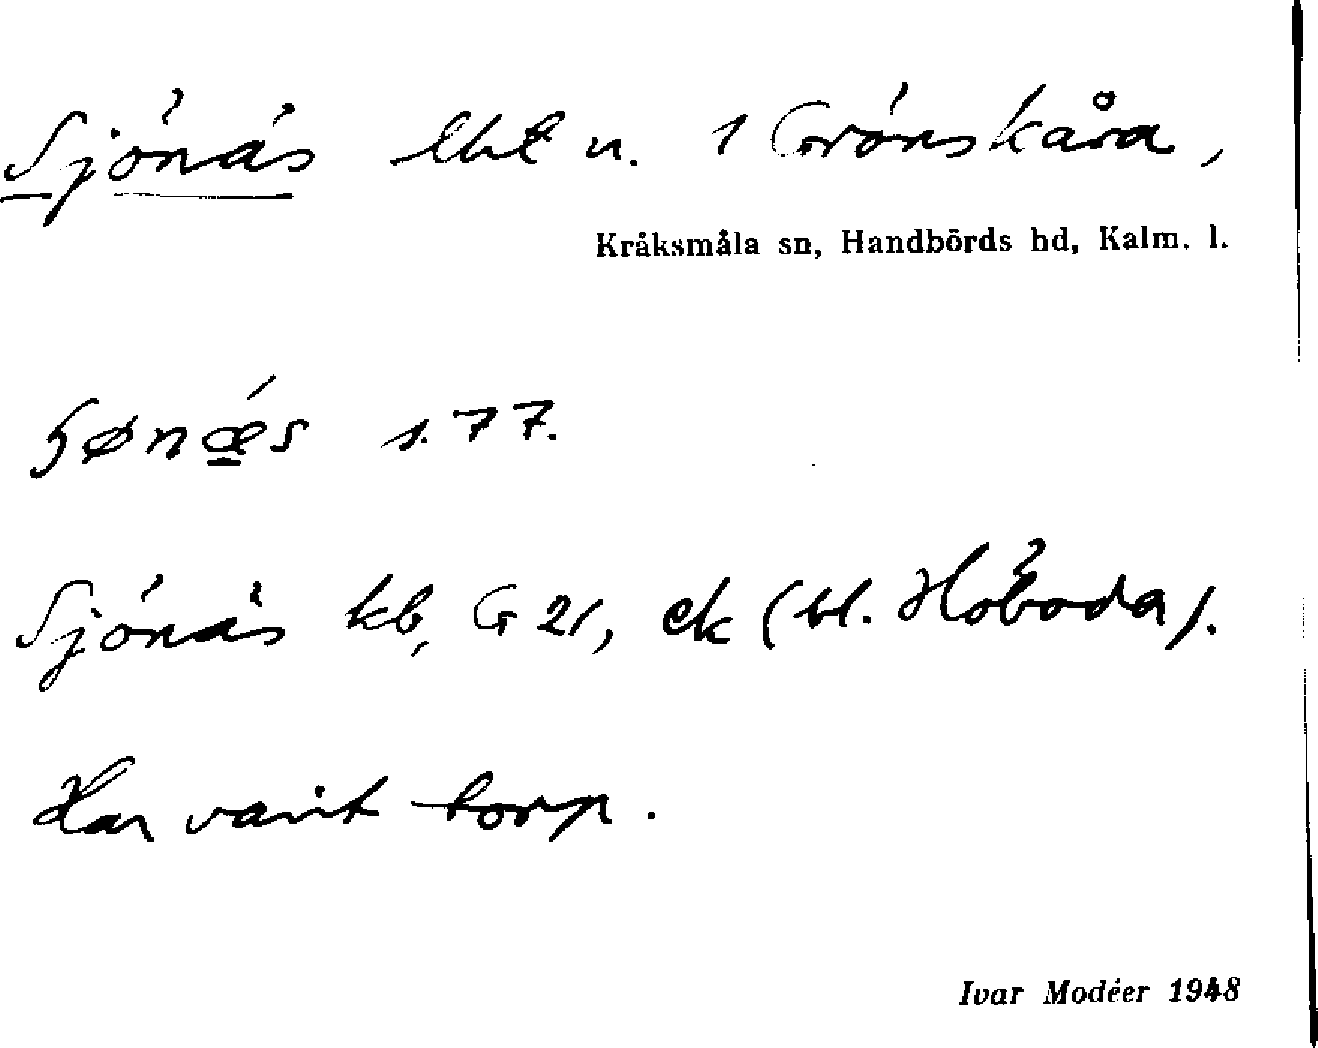 Sjönäs lht u. 1 Grönskåra,
Kråksmåla sn, Handbörds hd, Kalm. l.
s. 77.
Sjönäs kb, G 21, ek (bl. Höboda).
Har varit torp.
Ivar Modéer 1948